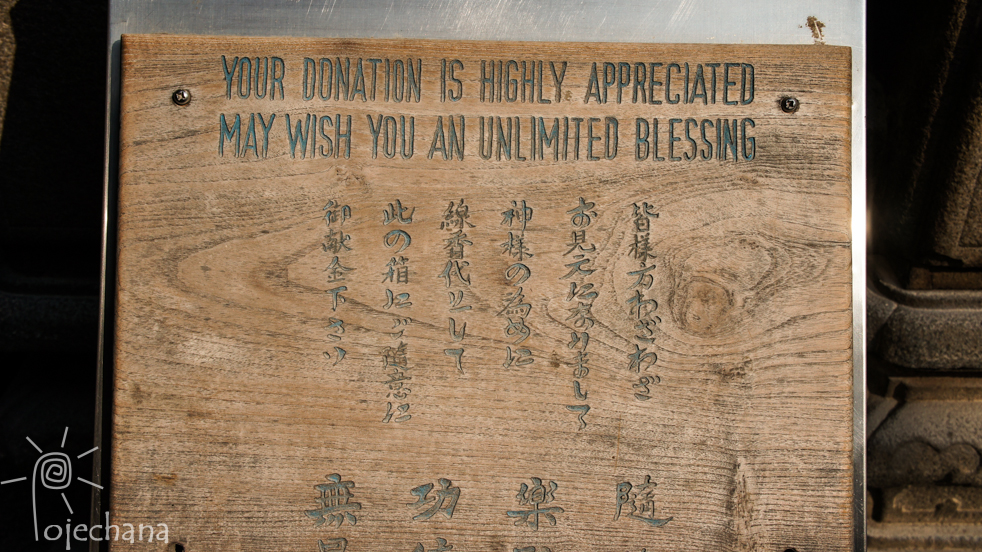 YOUR DONATION IS HIGHLY APPRECIATED
MAY WISH YOU AN UNLIMITED BLESSING
皆様方わざわざ
お見元になりまして
神様の為めに
線香代として
此の箱にご随意に
御献金下さい
隨
樂
功
無
Pojechana